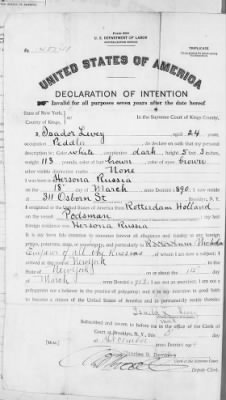 U. S. DEPARTMENT OF LABOR
TRIPLICATE
No.
UNITED STATES OF AMERICA
DECLARATION OF INTENTION
Invalid for all purposes seven years after the date hereof
State of New York,
County of Kings,
In the Supreme Court of Kings County.
I, Isador Levey, aged 24 years,
occupation Peddler, do declare on oath that my personal
description is: Color white, complexion dark, height 5 feet 3 inches,
weight 113 pounds, color of hair brown, color of eyes brown
other visible distinctive marks None
I was born in Hersona Russia
on the 18 day of March, anno Domini 1890; I now reside
at 311 Osborn St, Brooklyn, N. Y.
I emigrated to the United States of America from Rotterdam Holland
on the vessel Potsman; my last
foreign residence was Hersona Russia
It is my bona fide intention to renounce forever all allegiance and fidelity to any foreign
prince, potentate, state, or sovereignty, and particularly to Nicholas
Emperor of all the Russias, of whom I am now a subject; I
arrived at the port of New York, in the
State of New York, on or about the day
of March, anno Domini 1912; I am not an anarchist; I am not a
polygamist nor a believer in the practice of polygamy; and it is my intention in good faith
to become a citizen of the United States of America and to permanently reside therein:
Subscribed and sworn to before me in the office of the Clerk of
Court at Brooklyn, N. Y., this day
of December, anno Domini 191
Clerk of the Supreme Court.
Deputy Clerk.